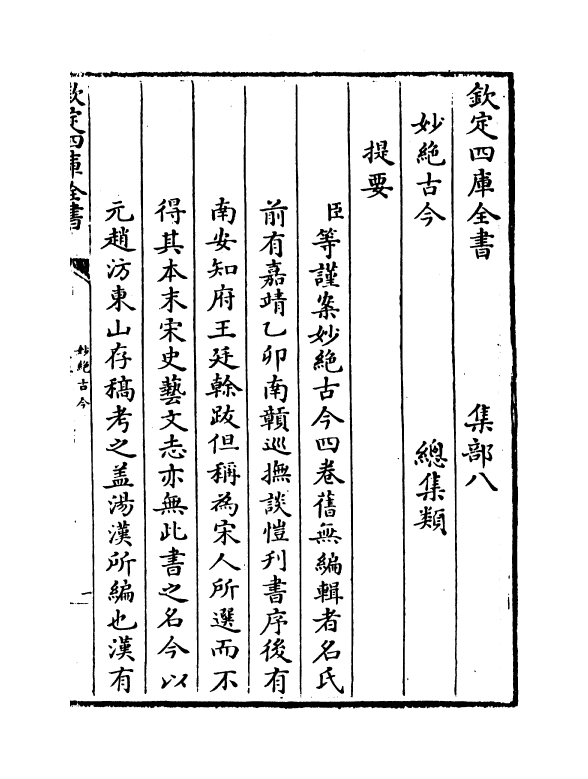 欽定四庫全書 集部八
妙絶古今 總集類
提要
臣等謹案妙絶古今四卷舊無編輯者名氏
前有嘉靖乙卯南贛巡撫談愷刋書序後有
南安知府王廷榦跋但稱為宋人所選而不
得其本末宋史藝文志亦無此書之名今以
元趙汸東山存稿考之盖湯漢所編也漢有
欽定四庫全書
妙絶古今
一